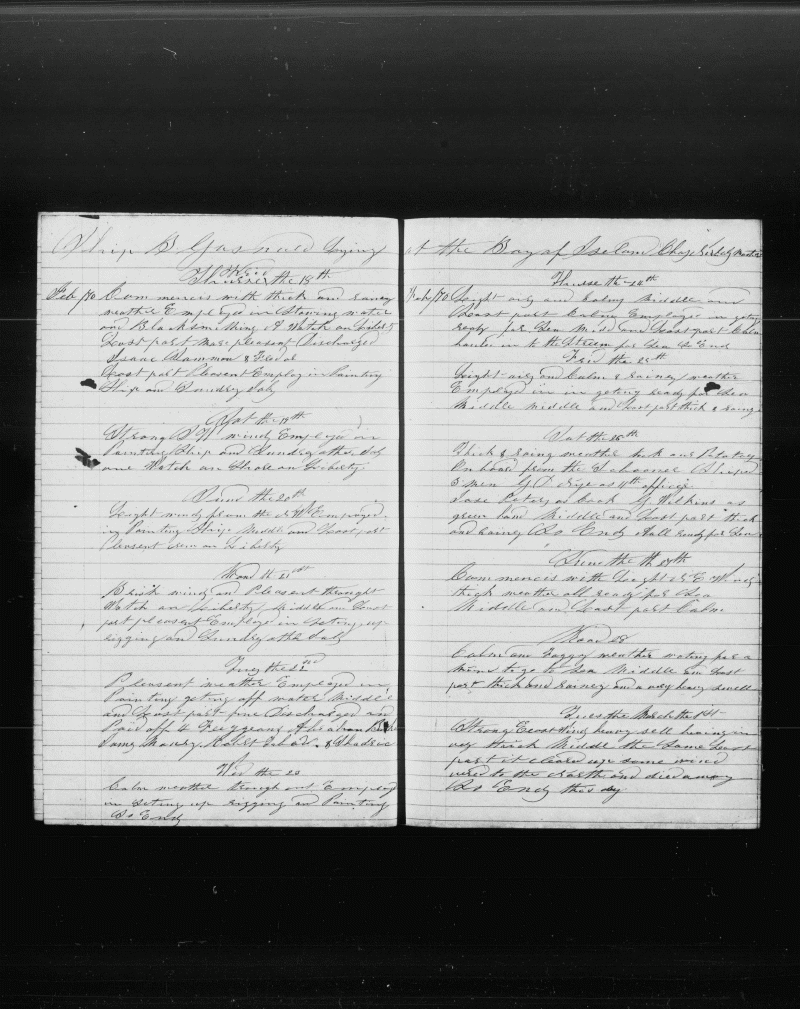 Ship B Gosnold Lying
Friday the 18th
Feb /70 Commences with thick and rainey
weather Employed in Stowing water
and Blacksmithing A Watch on
Last part more pleasent Discharged
Isaac Dammon &
Last part Pleasent Employ in Painting
Ship and Sundry Job
Sat the 19th
Strong S W winds Employed in
Painting Ship and Sundry other Job
one Watch on Shore on Liberty
Sund the 20th
Light winds from the S W Employed
in Painting Ship Middle and Last part
Pleasent crew on Liberty
Mond the 21st
Brisk winds and Pleasent throught
Watch on Liberty Middle and Last
part pleasent Employe in seting up
rigging and Sundry other Job
Tues the 22nd
Pleasent weather Employed in
Painting geting off water Middle
and Last part fine Discharged and
Paid off 4
James
Wed the 23
Calm weather through out Employed
in Seting up rigging and Painting
So Ends
at the Bay of Iseland Master
Thurse the 24th
Feb /70 Light airs and Calms Middle and
Last part Calms Employe in geting
ready for Sea Midd and Last part Calm
hauled in to the Streem for Sea So Ends
Frid the 25th
Light airs and Calms & rainey weather
Employed in in geting ready for Sea
Middle Middle and Last part thick & rainey
Sat the 26th
Thick & rainy weather took our Potatoes
On board from the Schooner Shiped
3 men as 4th officer
Jose Peters on Deck Wilkins as
green hand Middle and Last part thick
and rainey So Ends all ready for Sea
Sund the th 27th
Commences with Light S E Winds
thick weather all ready for Sea
Middle and Last part Calm
Mond 28
Calm and Foggy weather wating for a
wind to go to Sea Middle and Last
part thick and rainey and a very heavy swell
Tues the March the 1st
Strong East Winds heavy sell heaving in
very thick Middle the Same Last
part it cleard up some wind
verd to the North and died away
So Ends this day